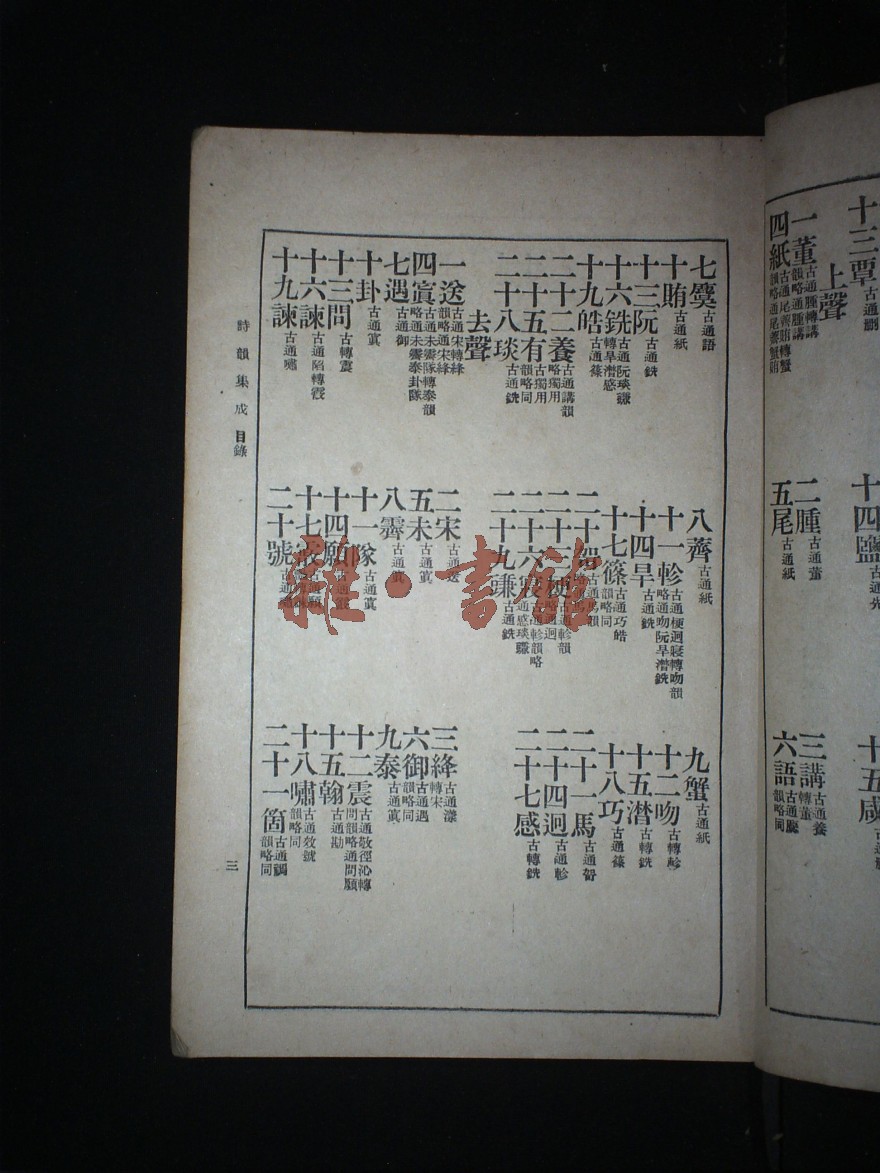 十三覃古通刪
十四鹽古通先
十五咸
上聲
一董古通腫轉講韻略通腫講
二腫古通董
三講古通養轉董
四紙古通尾薺賄轉蟹韻略通尾薺蟹賄
五尾古通紙
六語古通麌韻略同
七麌古通語
八薺古通紙
九蟹古通紙
十賄古通紙
十一軫古通梗迥寢轉吻韻略通吻阮旱潸銑
十二吻古轉軫
十三阮古通銑
十四旱古通銑
十五潸古轉銑
十六銑古通阮琰豏轉旱潸感
十七篠古通巧皓韻略同
十八巧古通篠
十九皓古通篠
二十哿古通馬韻
二十一馬古通哿
二十二養古通講韻略獨用
二十三梗古通軫韻略通迥
二十四迥古通軫
二十五有古獨用韻略同
二十六寑古通軫韻略通感琰豏
二十七感古轉銑
二十八琰古通銑
二十九豏古通銑
去聲
一送古通宋轉絳韻略通宋絳
二宋古通送
三絳古通漾轉宋
四寘古通未霽隊轉泰韻略通未霽泰卦隊
五未古通寘
六御古通遇韻略同
七遇古通御
八霽古通寘
九泰古通寘
十卦古通寘
十一隊古通寘
十二震古通敬徑沁轉問韻略通問願
十三問古轉震
十四願
十五翰古通勘
十六諫古通陷轉霰
十七霰
十八嘯古通效號韻略同
十九諫古通嘯
二十號
二十一箇古通禡韻略同
詩韻集成 目錄
三
雜·書館